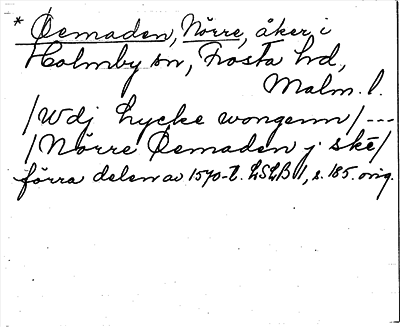 * Øemaden, Nörre, åker i
Holmby sn, Frosta hd,
Malm. l.
/Wdj Lycke wongenn/---
/Nörre Øemaden j skē/
förra delen av 1570-t. LSLB 1, s. 185. orig.